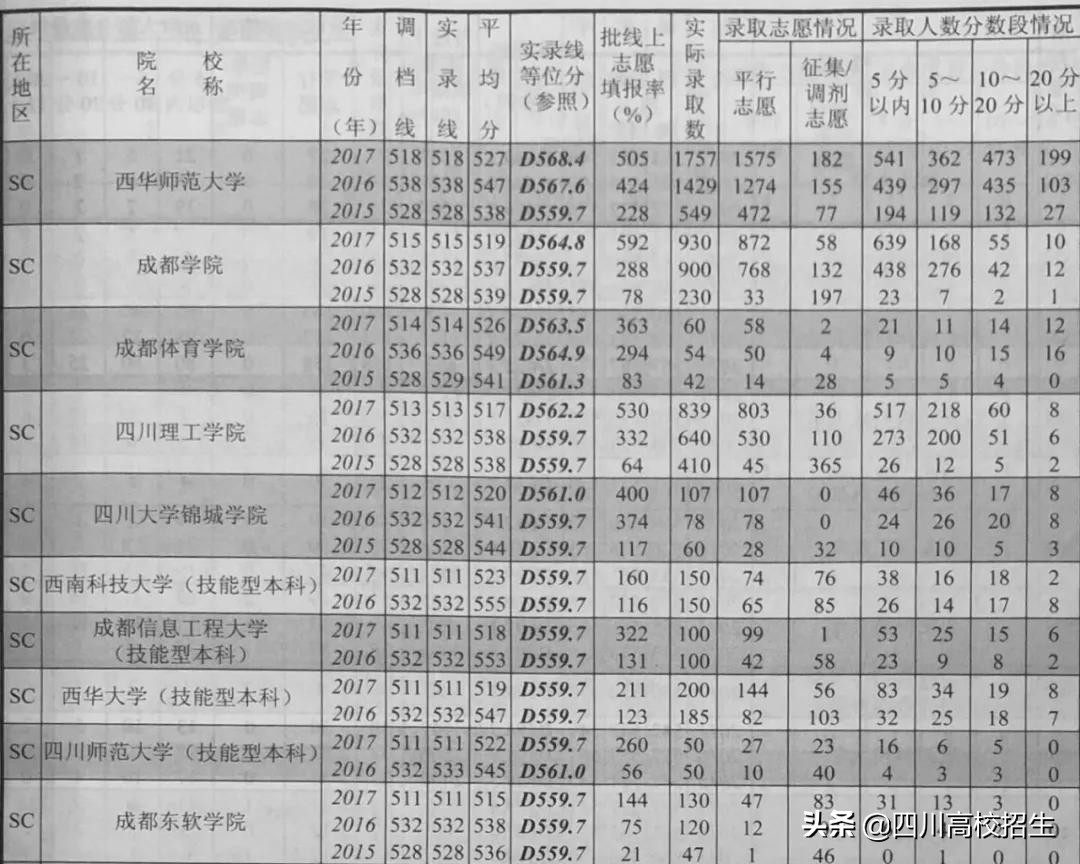 所在地区 院校名 年份(年) 调档线 实录线 平均分 实录线等位分(参照) 批线上志愿填报率(%) 实际录取数 录取志愿情况 录取人数分数段情况
平行志愿 征集/调剂志愿 5分以内 5～10分 10～20分 20分以上
2017 518 518 527 D568.4 505 1757 1575 182 541 362 473 199
SC 西华师范大学 2016 538 538 547 D567.6 424 1429 1274 155 439 297 435 103
2015 528 528 538 D559.7 228 549 472 77 194 119 132 27
2017 515 515 519 D564.8 592 930 872 58 639 168 55 10
SC 成都学院 2016 532 532 537 D559.7 288 900 768 132 438 276 42 12
2015 528 528 539 D559.7 78 230 33 197 23 7 2 1
2017 514 514 526 D563.5 363 60 58 2 21 11 14 12
SC 成都体育学院 2016 536 536 549 D564.9 294 54 50 4 9 10 15 16
2015 528 529 541 D561.3 83 42 14 28 5 5 4 0
2017 513 513 517 D562.2 530 839 803 36 517 218 60 8
SC 四川理工学院 2016 532 532 538 D559.7 332 640 530 110 273 200 51 6
2015 528 528 538 D559.7 64 410 45 365 26 12 5 2
2017 512 512 520 D561.0 400 107 107 0 46 36 17 8
SC 四川大学锦城学院 2016 532 532 541 D559.7 374 78 78 0 24 26 20 8
2015 528 528 544 D559.7 117 60 28 32 10 10 5 3
SC 西南科技大学（技能型本科） 2017 511 511 523 D559.7 160 150 74 76 38 16 18 2
2016 532 532 555 D559.7 116 150 65 85 26 14 17 8
SC 成都信息工程大学 2017 511 511 518 D559.7 322 100 99 1 53 25 15 6
（技能型本科） 2016 532 532 553 D559.7 131 100 42 58 23 9 8 2
SC 西华大学（技能型本科） 2017 511 511 519 D559.7 211 200 144 56 83 34 19 8
2016 532 532 547 D559.7 123 185 82 103 32 25 18 7
SC 四川师范大学（技能型本科） 2017 511 511 522 D559.7 260 50 27 23 16 6 5 0
2016 532 533 545 D561.0 56 50 10 40 4 3 3 0
2017 511 511 515 D559.7 144 130 47 83 31 13 3 0
SC 成都东软学院 2016 532 532 538 D559.7 75 120 12
2015 528 528 536 D559.7 21 47 1 46 0 1 0 0
头条 @四川高校招生